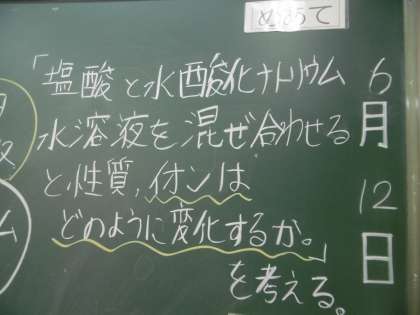 めあて
6月12日
「塩酸と水酸化ナトリウム
水溶液を混ぜ合わせる
と性質,イオンは
どのように変化するか。」
を考える。
ム